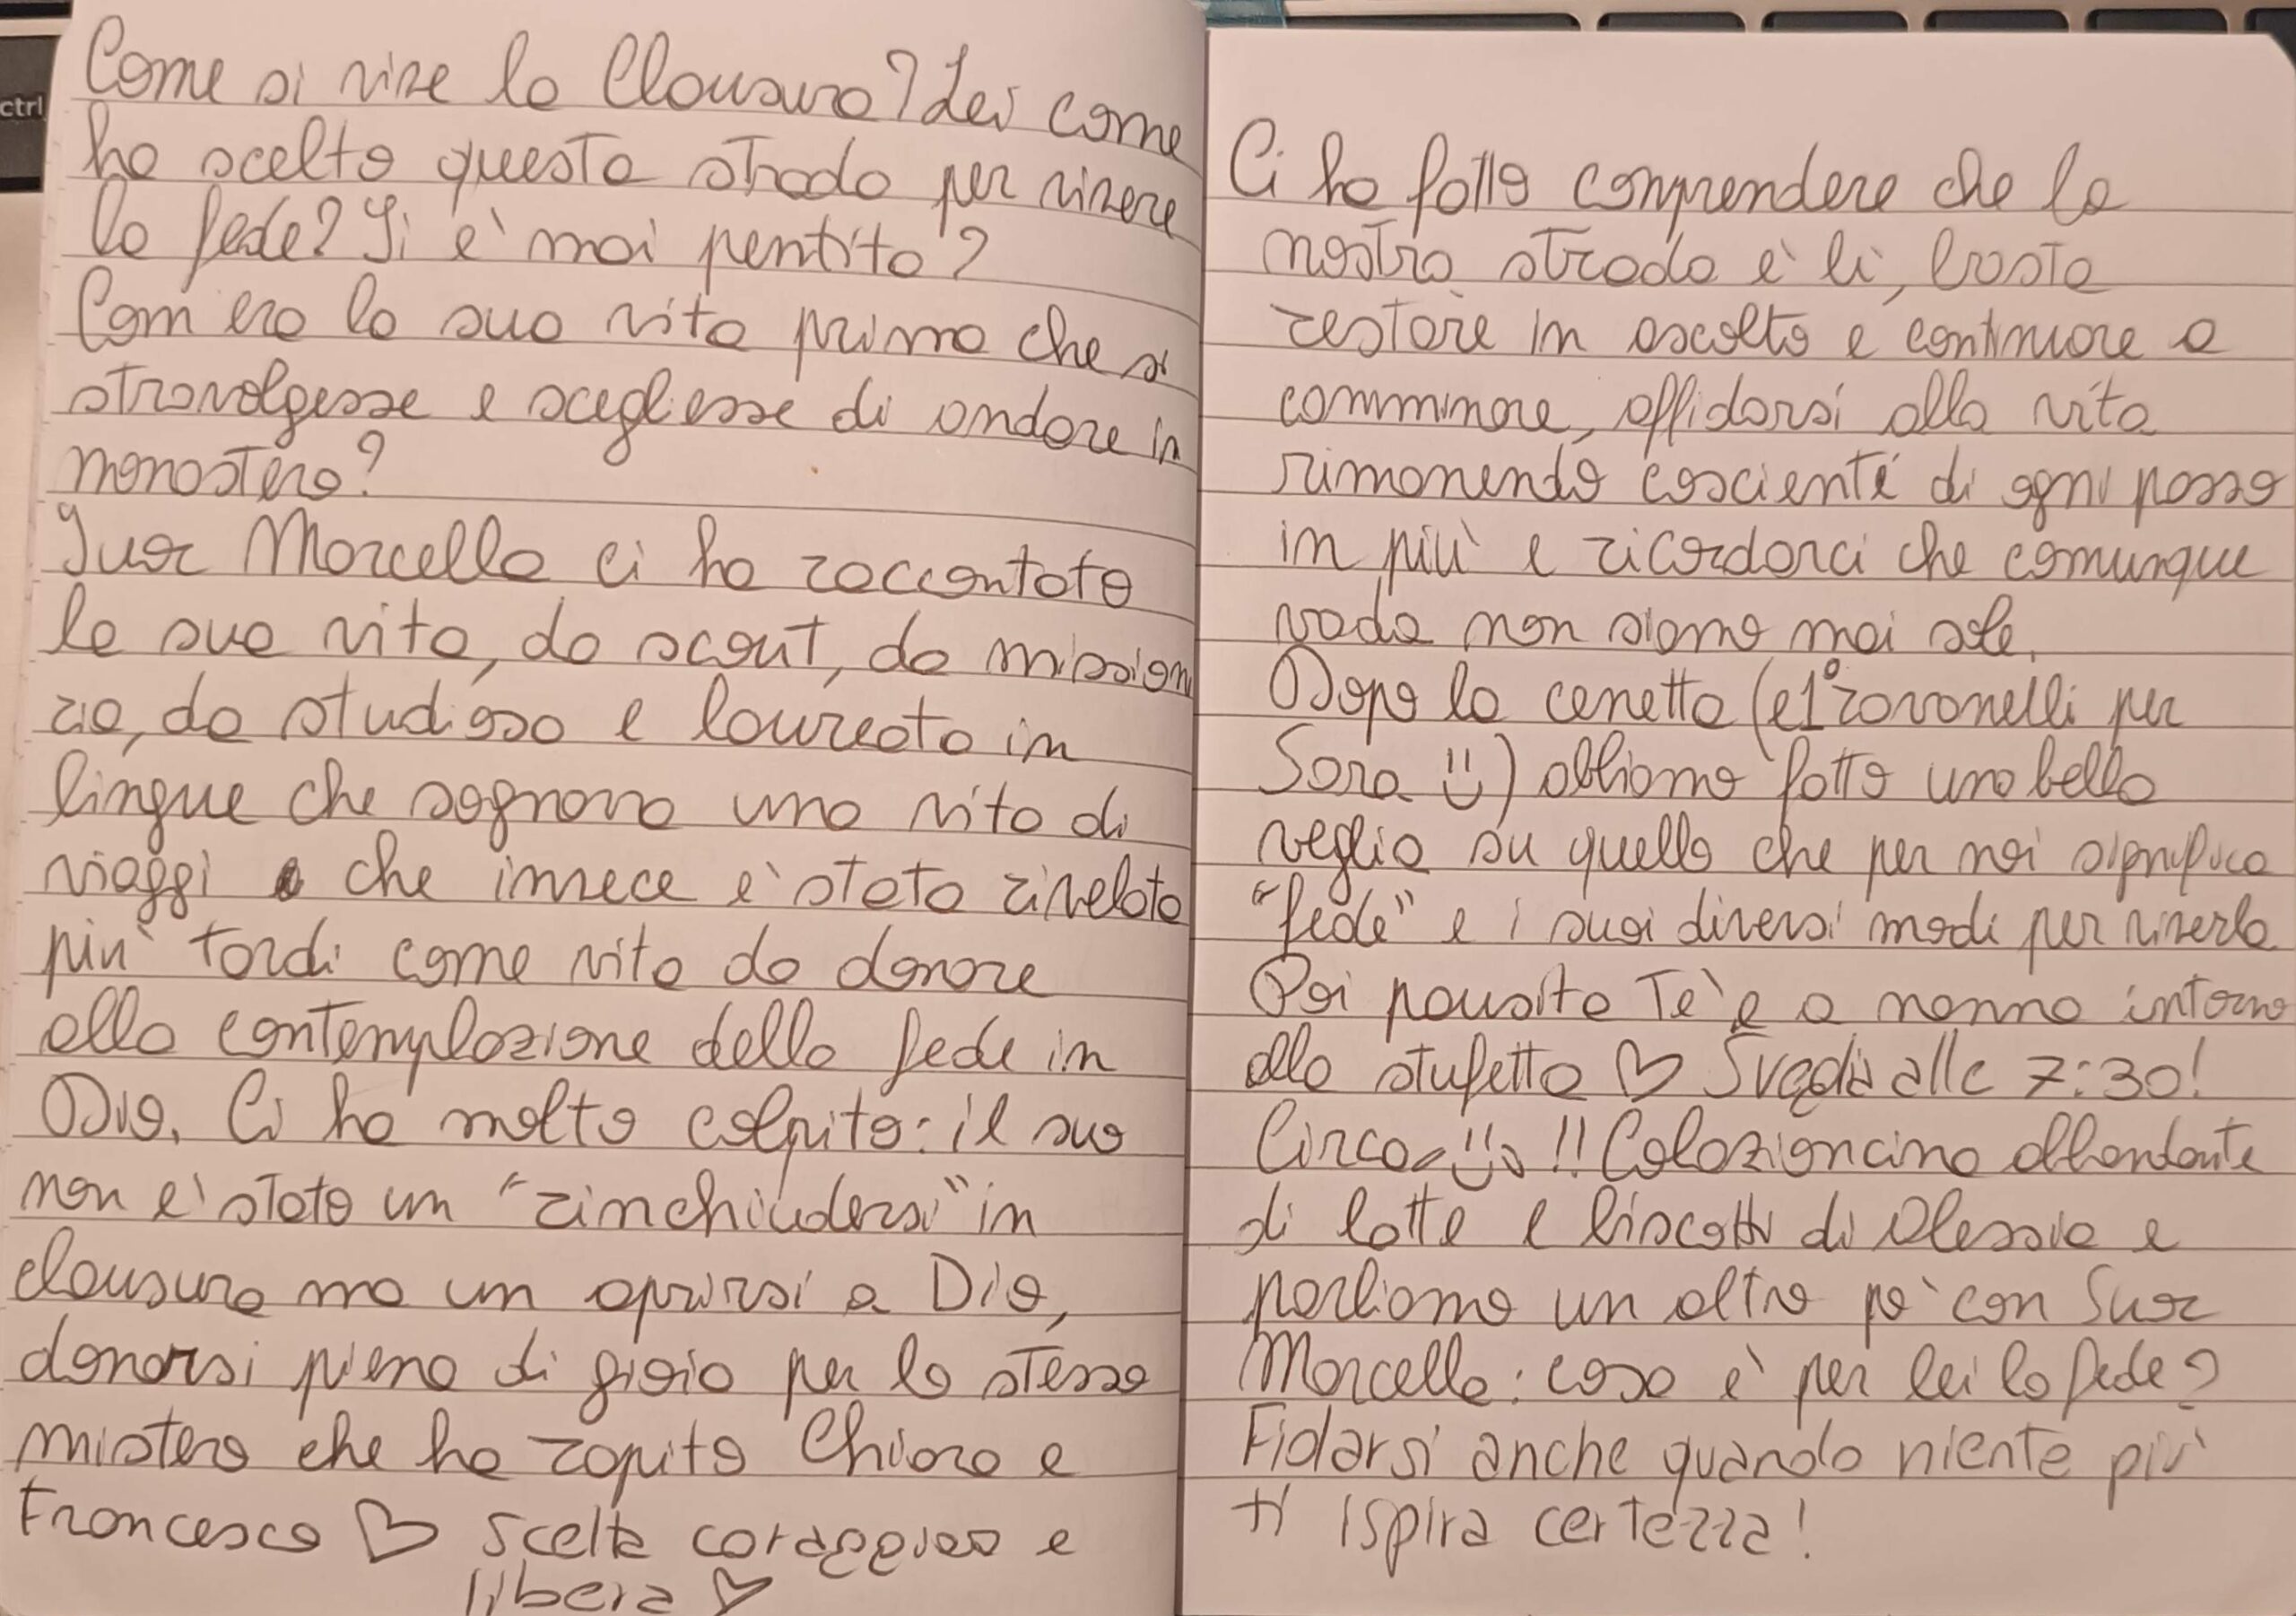 Come si vive la Clausura? Lei come
ha scelto questa strada per vivere
la fede? Si è mai pentita?
Com era la sua vita prima che si
stravolgesse e scegliesse di andare in
monastero?
Suor Marcella ci ha raccontato
la sua vita, da scout, da mission
ria, da studiosa e laureata in
lingue che sognava una vita di
viaggi che invece è stata rivelata
più tardi come vita da donare
alla contemplazione della fede in
Dio. Ci ha molto colpito: il suo
non è stato un "rinchiudersi" in
clausura ma un aprirsi a Dio,
donarsi piena di gioia per lo stesso
mistero che ha rapito Chiara e
Francesco ♡ Scelta coraggiosa e
libera ♡
Ci ha fatto comprendere che la
nostra strada è lì, basta
restare in ascolto e continuare a
camminare, affidarsi alla vita
rimanendo coscienti di ogni passo
in più e ricordarci che comunque
vada non siamo mai sole.
Dopo la cenetta (e 1° ravanelli per
Sara) abbiamo fatto una bella
veglia su quello che per noi significa
"fede" e i suoi diversi modi per viverla
Poi pausita Tè e a nanna intorno
alla stufetta ♡ Sveglia alle 7:30!
Circa !! Colazioncina abbondante
di latte e biscotti di Alessia e
parliamo un altro pò con Suor
Marcella: cosa è per lei la fede?
Fidarsi anche quando niente più
ti ispira certezza!